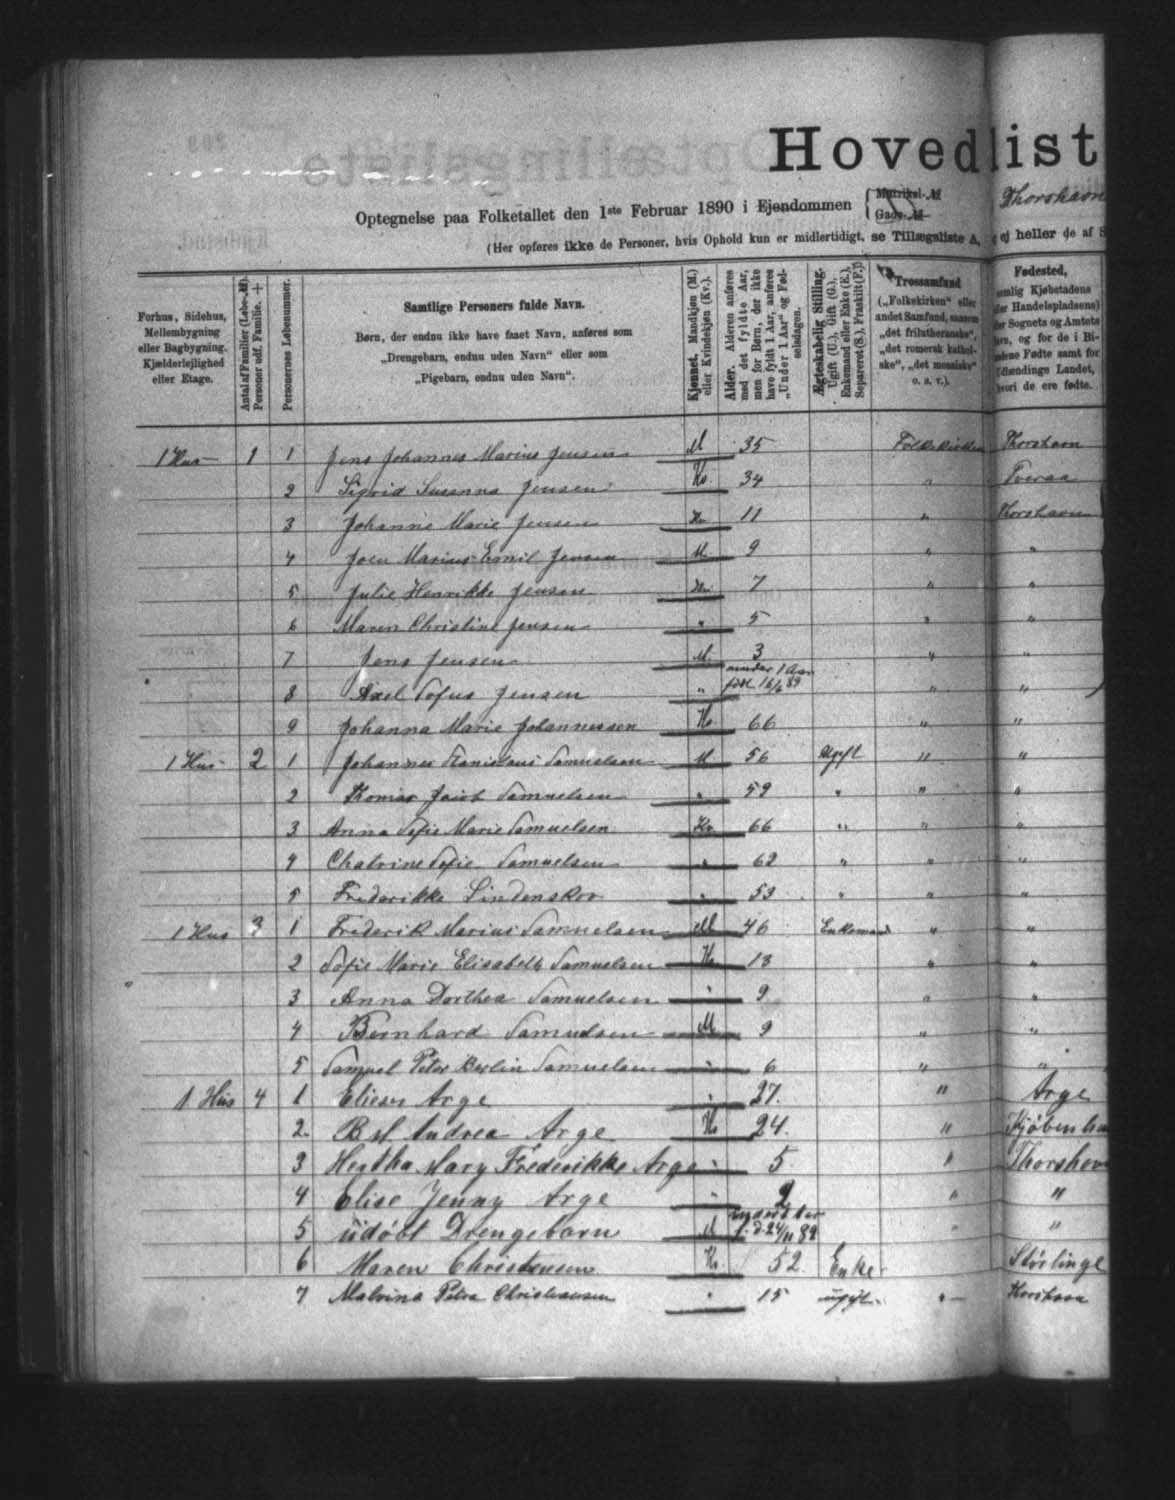 Hovedlist
Optegnelse paa Folketallet den 1ste Februar 1890 i Ejendommen { Matrikel-№ Gade-№ Thorshavn
(Her opføres ikke de Personer, hvis Ophold kun er midlertidigt, se Tillægsliste A, ej heller de af
Forhus, Sidehus, Mellembygning eller Bagbygning. Kjælderlejlighed eller Etage.
Antal af Familier (Løbe-№). Personer udf. Familie. +
Personernes Løbenummer.
Samtlige Personers fulde Navn.
Børn, der endnu ikke have faaet Navn, anføres som
„Drengebarn, endnu uden Navn" eller som
„Pigebarn, endnu uden Navn".
Kjønnet. Mandkjøn (M.) eller Kvindekjøn (Kv.).
Alder. Alderen anføres med det fyldte Aar, men for Børn, der ikke have fyldt 1 Aar, anføres „Under 1 Aar" og Fødselsdagen.
Ægteskabelig Stilling. Ugift (U.), Gift (G.), Enkemand eller Enke (E.), Separeret (S.), Fraskilt (F.)
Trossamfund
(„Folkekirken" eller andet Samfund, saasom „det frilutheranske", „det romersk katholske", „det mosaiske" o. s. v.).
Fødested,
1 Hus 1 1 Jens Johannes Marius Jensen M 35 Folkekirken Thorshavn
2 Sigrid Susanna Jensen Kv. 34 " Tveraa
3 Johanne Marie Jensen Kv 11 " Thorshavn
4 Joen Marius Emil Jensen M 9 " "
5 Julie Henrikke Jensen Kv 7 " "
6 Maren Christine Jensen " 5 " "
7 Jens Jensen M. 3 " "
8 Axel Sofus Jensen " under 1 Aar " "
9 Johanna Marie Johannessen Kv 66 " "
1 Hus 2 1 Johannes Stanislaus Samuelsen M 56 Ugift " "
2 Thomas Jacob Samuelsen " 59 " " "
3 Anna Sofie Marie Samuelsen Kv 66 " " "
4 Chatrine Sofie Samuelsen " 62 " " "
5 Frederikke Lindenskov " 53 " " "
1 Hus 3 1 Frederik Marius Samuelsen M 46 Enkemand " "
2 Sofie Marie Elisabeth Samuelsen K 13 " "
3 Anna Dorthea Samuelsen " 9 " "
4 Bernhard Samuelsen M 9 " "
5 Samuel Peter Berlin Samuelsen " 6 " "
1 Hus 4 1 Elieser Arge " 27. " Arge
2. Andrea Arge K 24. " Kjøbenha
3 Hertha Mary Frederikke Arge " 5 " Thorshavn
4 Elise Jenny Arge " 2 " "
5 udøbt Drengebarn M f. d. 24/11 89 " "
6 Maren Christensen K 52 Enke
7 Malvina Petra Christiansen " 15 ugift " Thorshavn